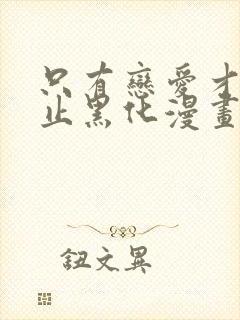 只有戀愛才
止黑化漫畫
鈕文異